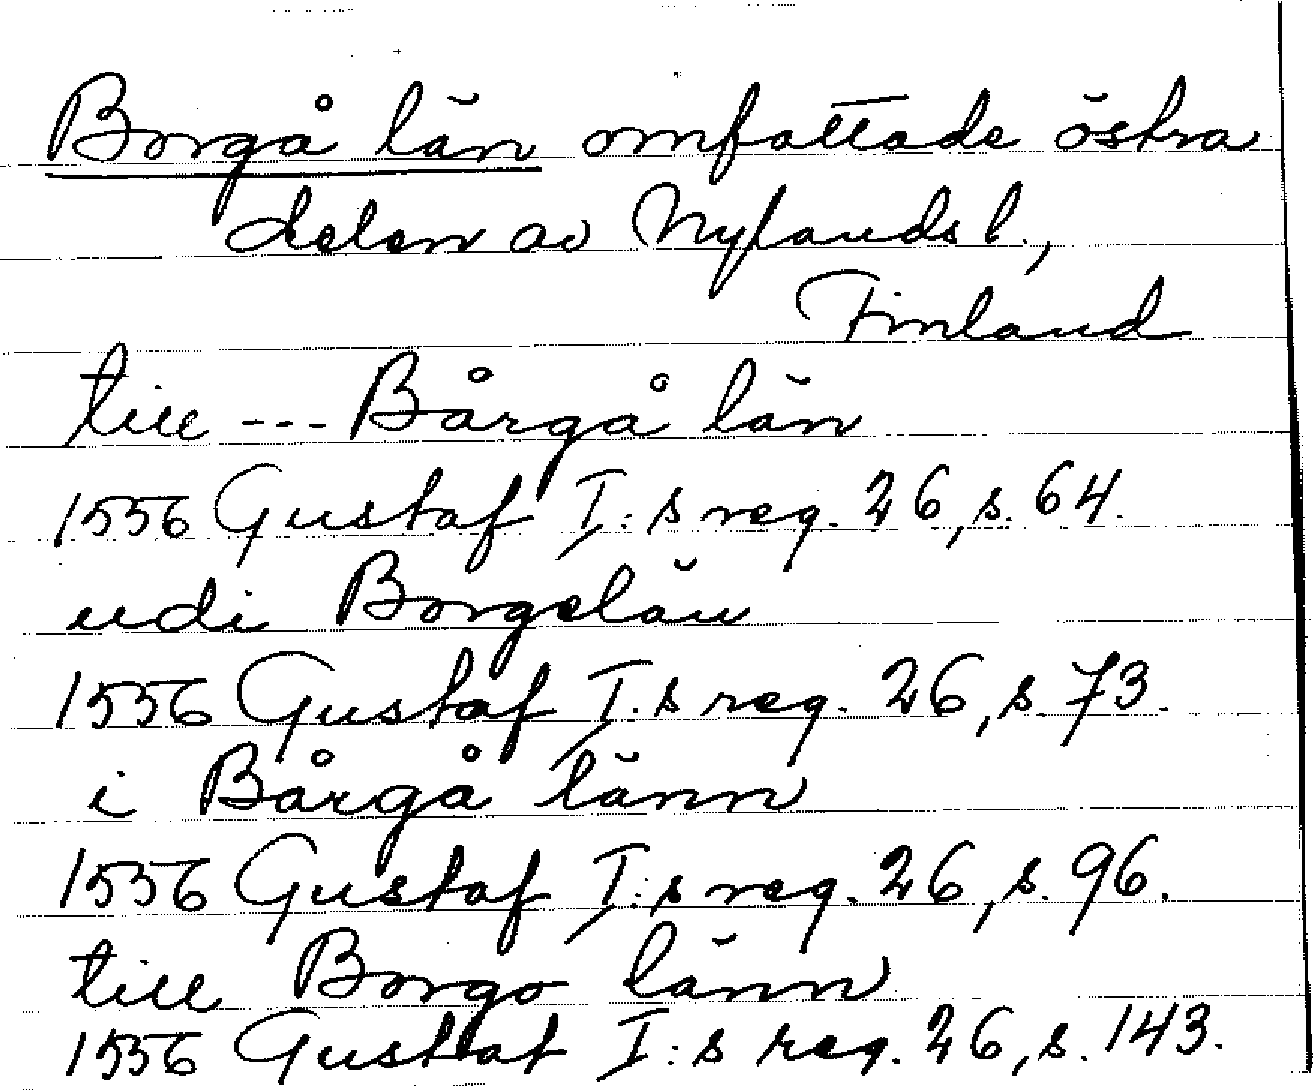 Borgå län omfattade östra
delen av Nylands l.,
Finland
till --- Bårgå län
1556 Gustaf I:s reg. 26, s. 64.
udi Borgelän
1556 Gustaf I:s reg. 26, s. 73.
i Bårgå länn
1556 Gustaf I:s reg. 26, s. 96.
till Borgo länn
1556 Gustaf I:s reg. 26, s. 143.